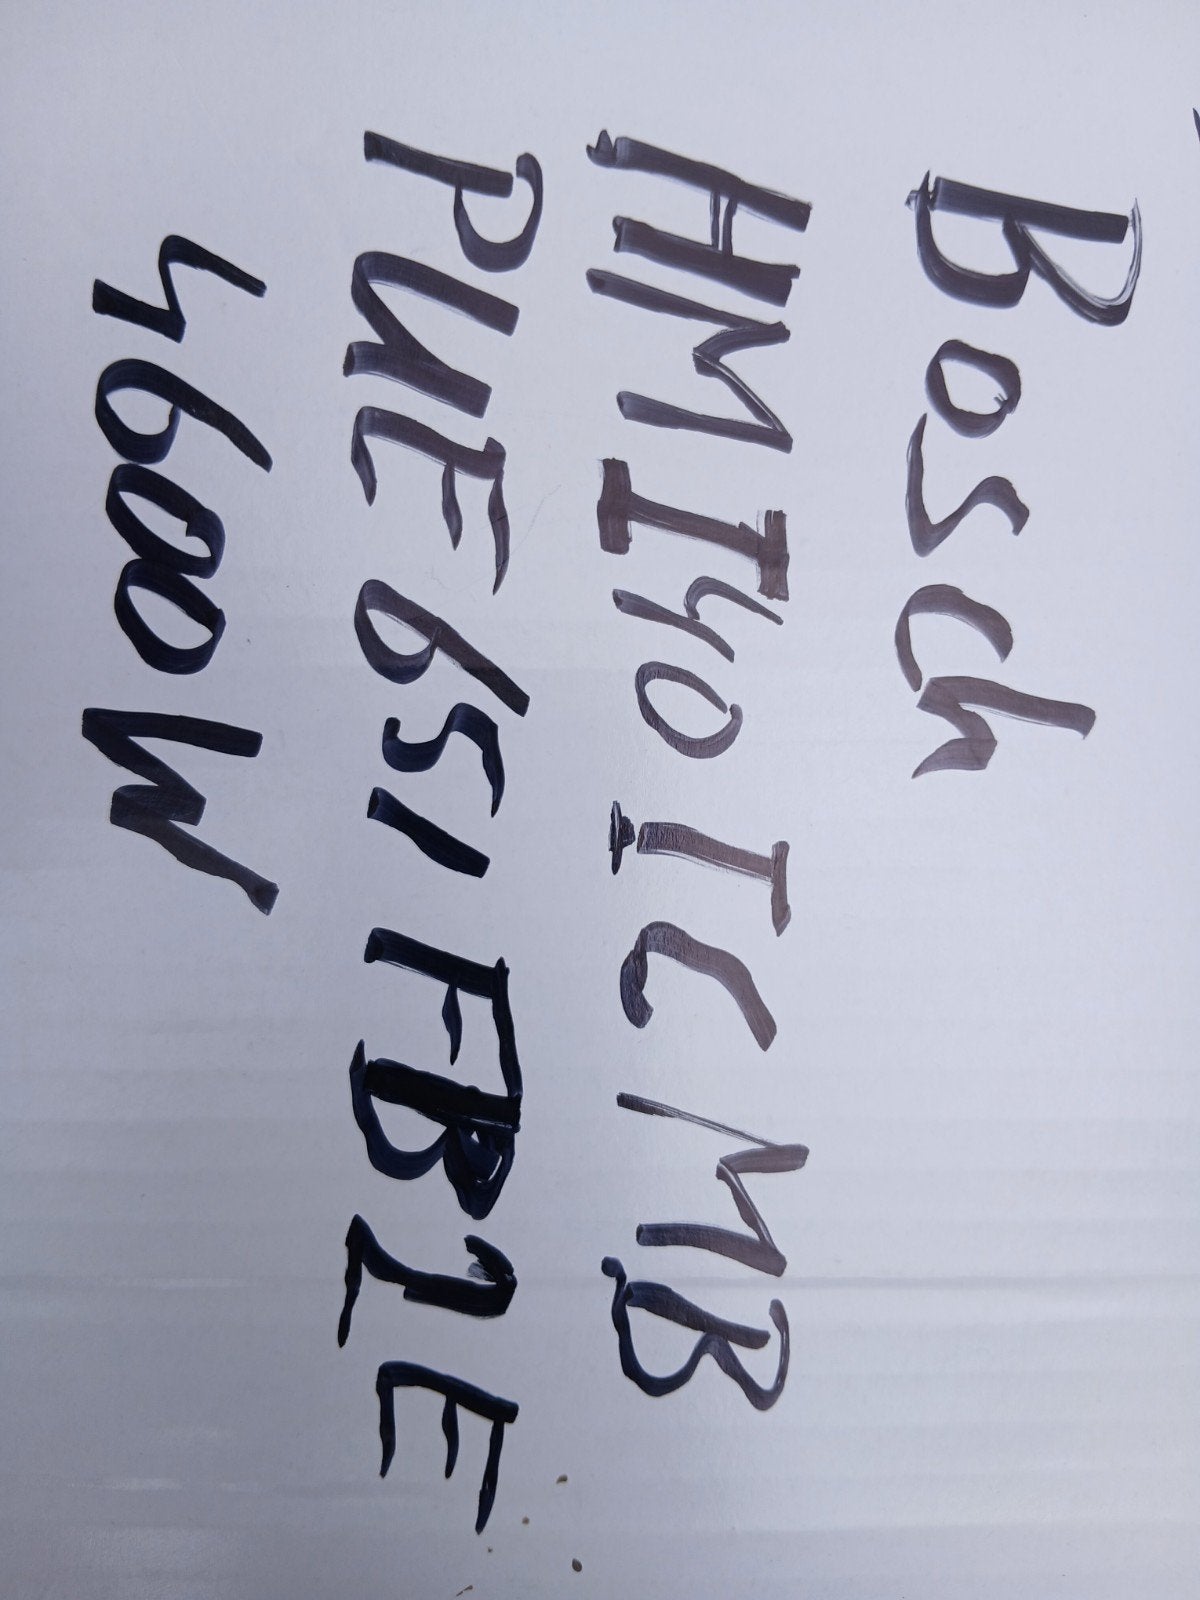 Bosch
HMI40 IC MB
PUE651FB2E
4600W